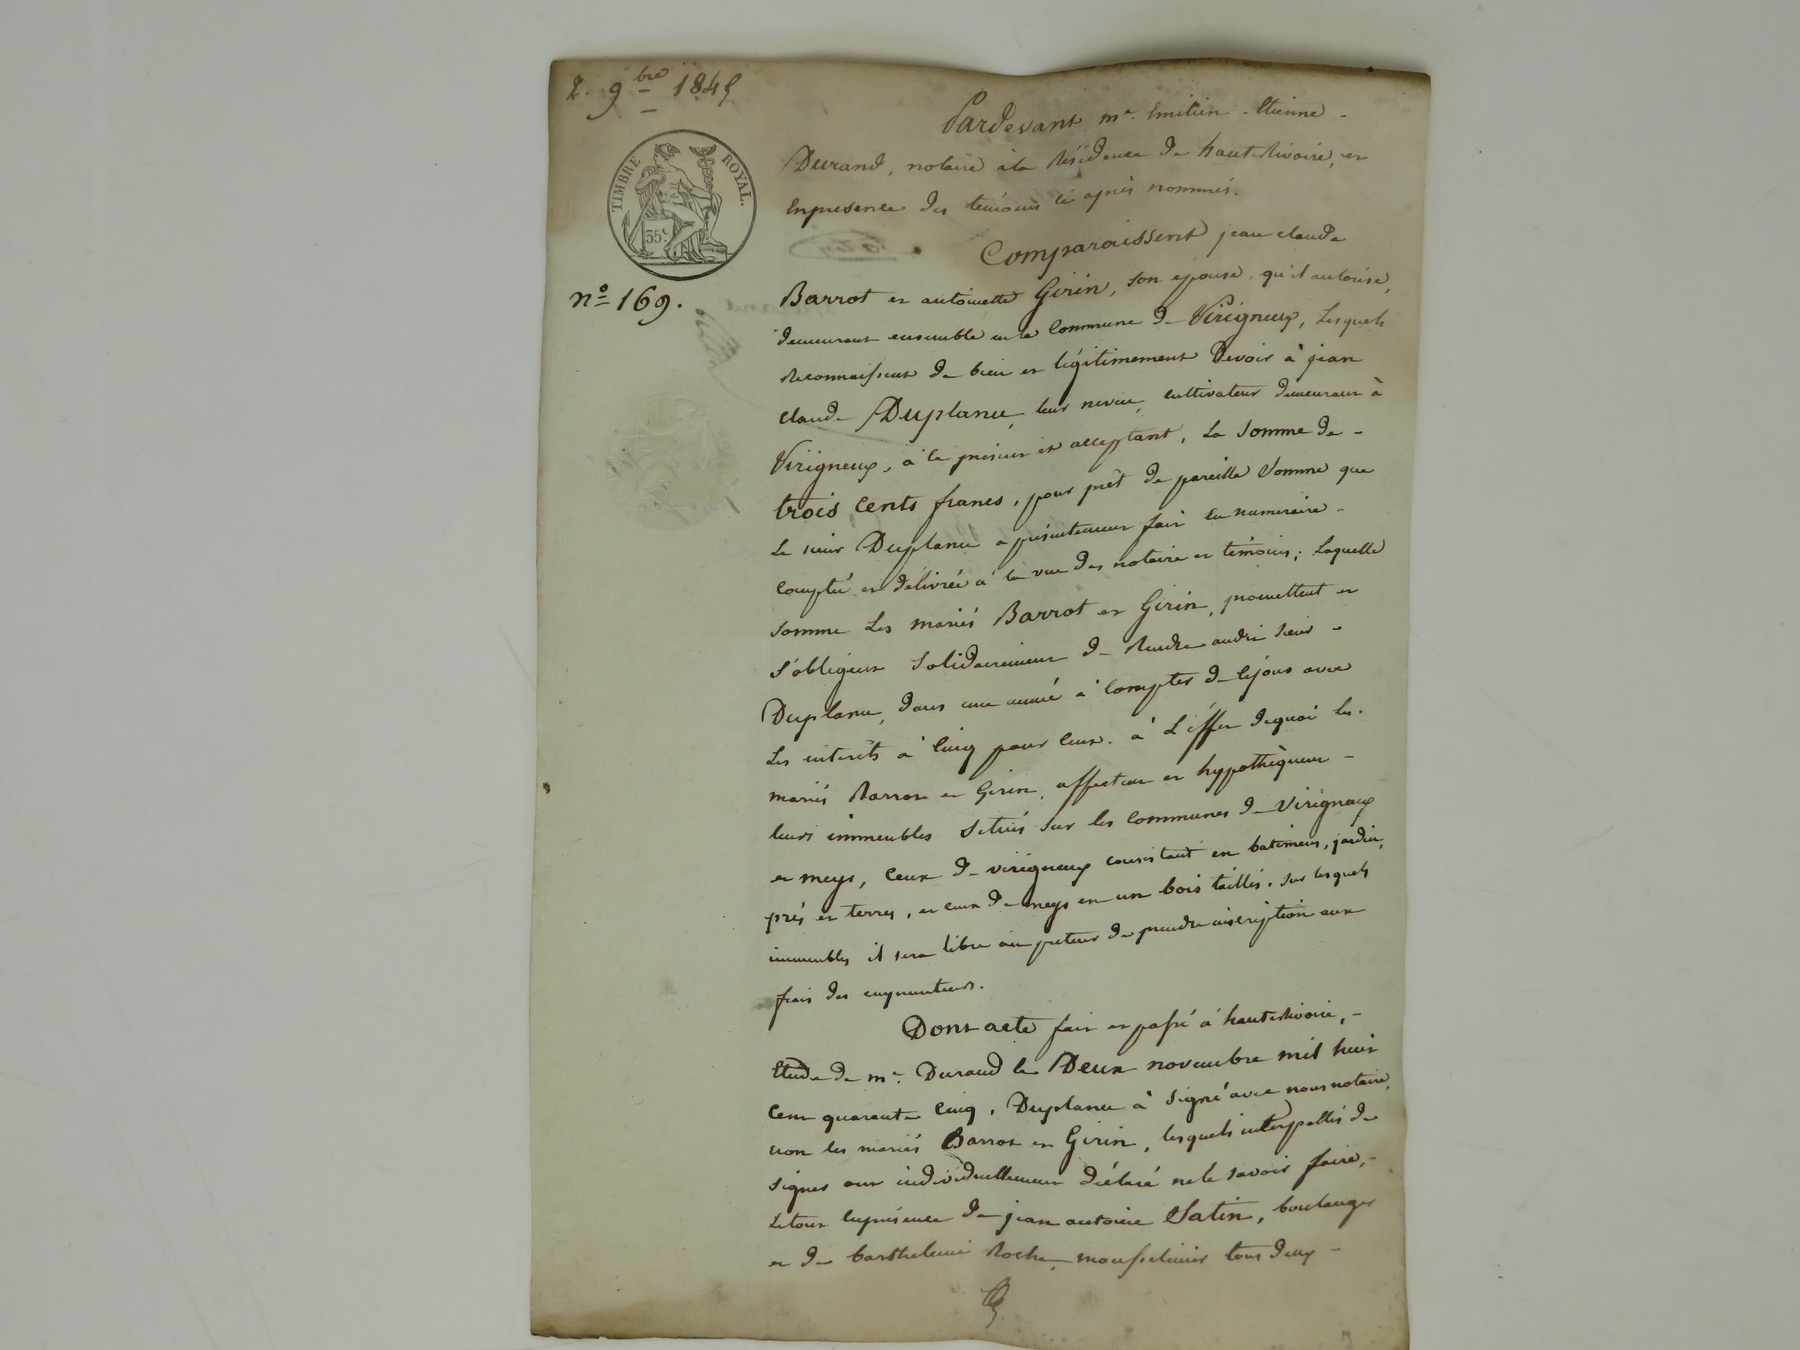 2. 9bre 1845
TIMBRE ROYAL.
35c
nº 169.
Pardevant me. Emilien - Etienne -
Durand, notaire à la résidence de hauterivoire, et
Enpresence des témoins ci après nommés.
Comparaissent jean claude
Barrot et antoinette Girin, son epouse qu'il autorise,
demeurant ensemble en la Commune de Virigneux, Lesquels
reconnaissent de bien et légitimement Devoir à jean
claude Duplanu, leur neveu, cultivateur demeurant à
Virigneux, à ce présent et acceptant, La Somme de -
trois cents francs, pour prêt de pareille Somme que
Le sieur Duplanu a présentement fait en numéraire -
compté et délivrée à la vue des notaire et témoins; Laquelle
somme Les mariés Barrot et Girin, promettent et
s'obligent Solidairement de Rendre audit Sieur -
Duplanu, dans une année à compter de cejour avec
Les intérêts à Cinq pour Cent. à L'éffet dequoi les.
mariés Barrot et Girin, affectent et hypothèquent -
leurs immeubles Situés sur les Communes de Virigneux
et meys, Ceux de virigneux consistant en batiments, jardin,
prés et terres, et ceux de meys en un bois taillis. Sur lesquels
immeubles il sera libre au preteur de prendre inscription aux
frais des emprunteurs.
Dont acte fait et passé à hauterivoire, -
Etude de me. Durand le Deux novembre mil huit
Cent quarante Cinq, Duplanu à Signé avec nous notaire,
non les mariés Barrot et Girin, lesquels interpellés de
signer ont individuellement déclaré ne le savoir faire, -
Letout enprésence de jean antoine Satin, boulanger
et de barthelemi Roche, mousselinier tous deux -